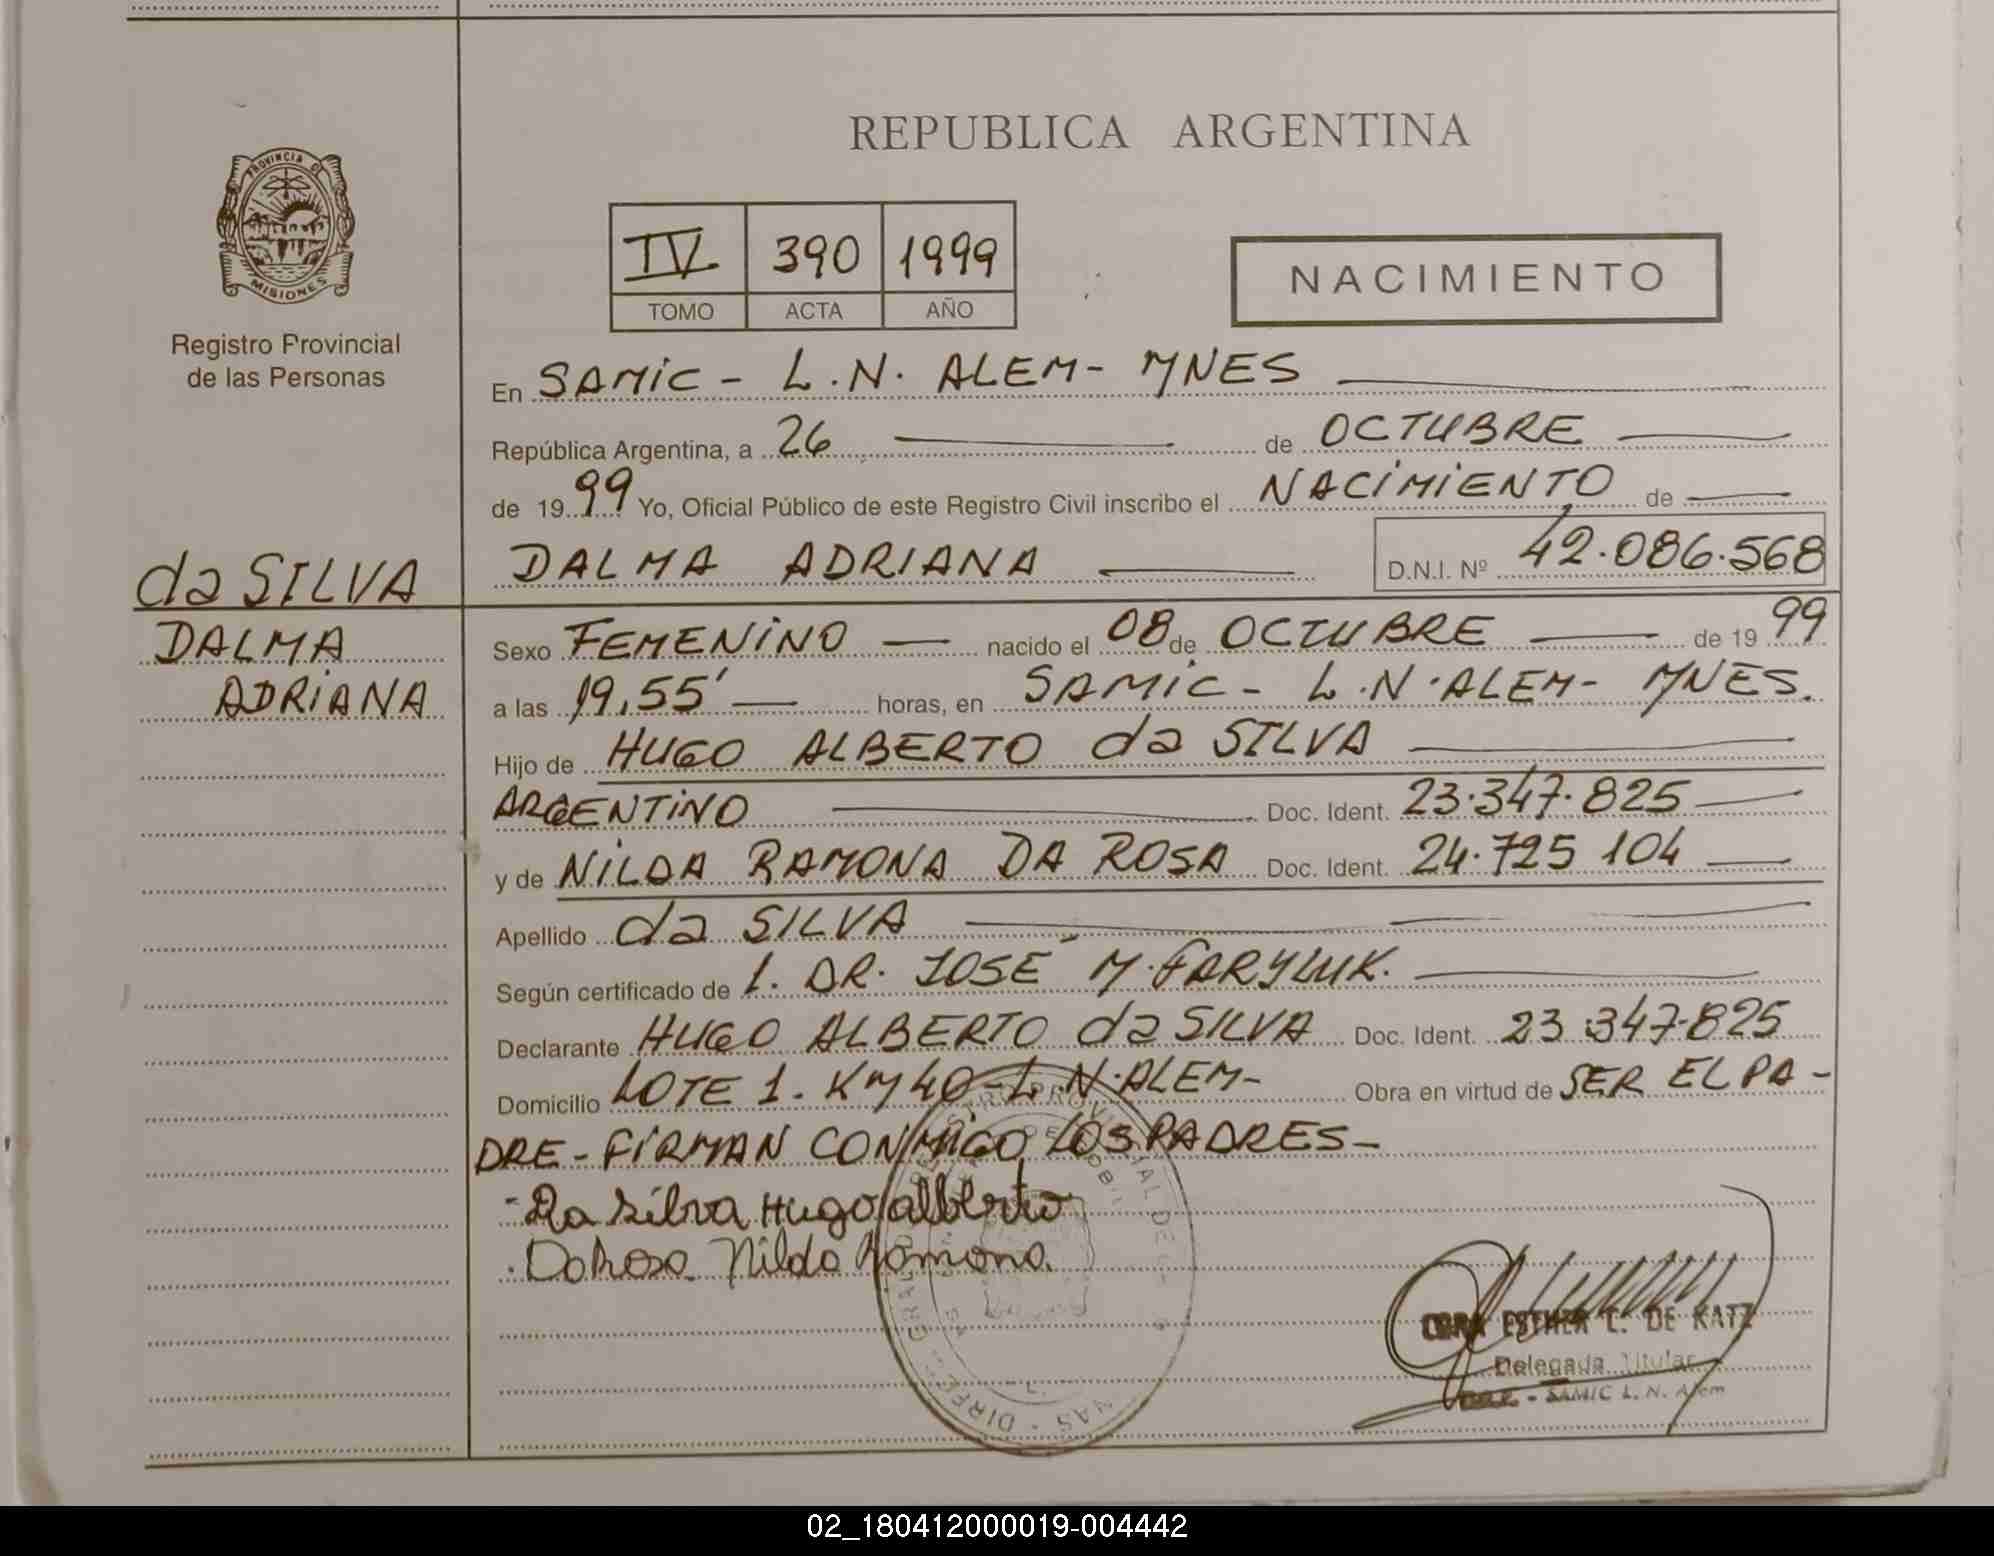 REPUBLICA ARGENTINA
PROVINCIA DE
MISIONES
Registro Provincial
de las Personas
IV 390 1999
TOMO ACTA AÑO
NACIMIENTO
En SAMIC - L.N. ALEM - MNES
República Argentina, a 26 de OCTUBRE
de 1999 Yo, Oficial Público de este Registro Civil inscribo el NACIMIENTO de
DALMA ADRIANA D.N.I. Nº 42.086.568
da SILVA
DALMA
ADRIANA
Sexo FEMENINO nacido el 08 de OCTUBRE de 1999
a las 19,55' horas, en SAMIC - L.N. ALEM - MNES.
Hijo de HUGO ALBERTO da SILVA
ARGENTINO Doc. Ident. 23.347.825
y de NILDA RAMONA DA ROSA Doc. Ident. 24.725 104
Apellido da SILVA
Según certificado de 1. DR. JOSÉ M. FARYLUK.
Declarante HUGO ALBERTO da SILVA Doc. Ident. 23.347.825
Domicilio LOTE 1. KM 40 - L.N. ALEM - Obra en virtud de SER EL PA-
DRE - FIRMAN CONMIGO LOS PADRES -
- Da Silva Hugo alberto
. DaRosa Nilda Ramona.
ESTHER L. DE KATZ
Delegada Titular
SAMIC L. N. Alem
02_180412000019-004442